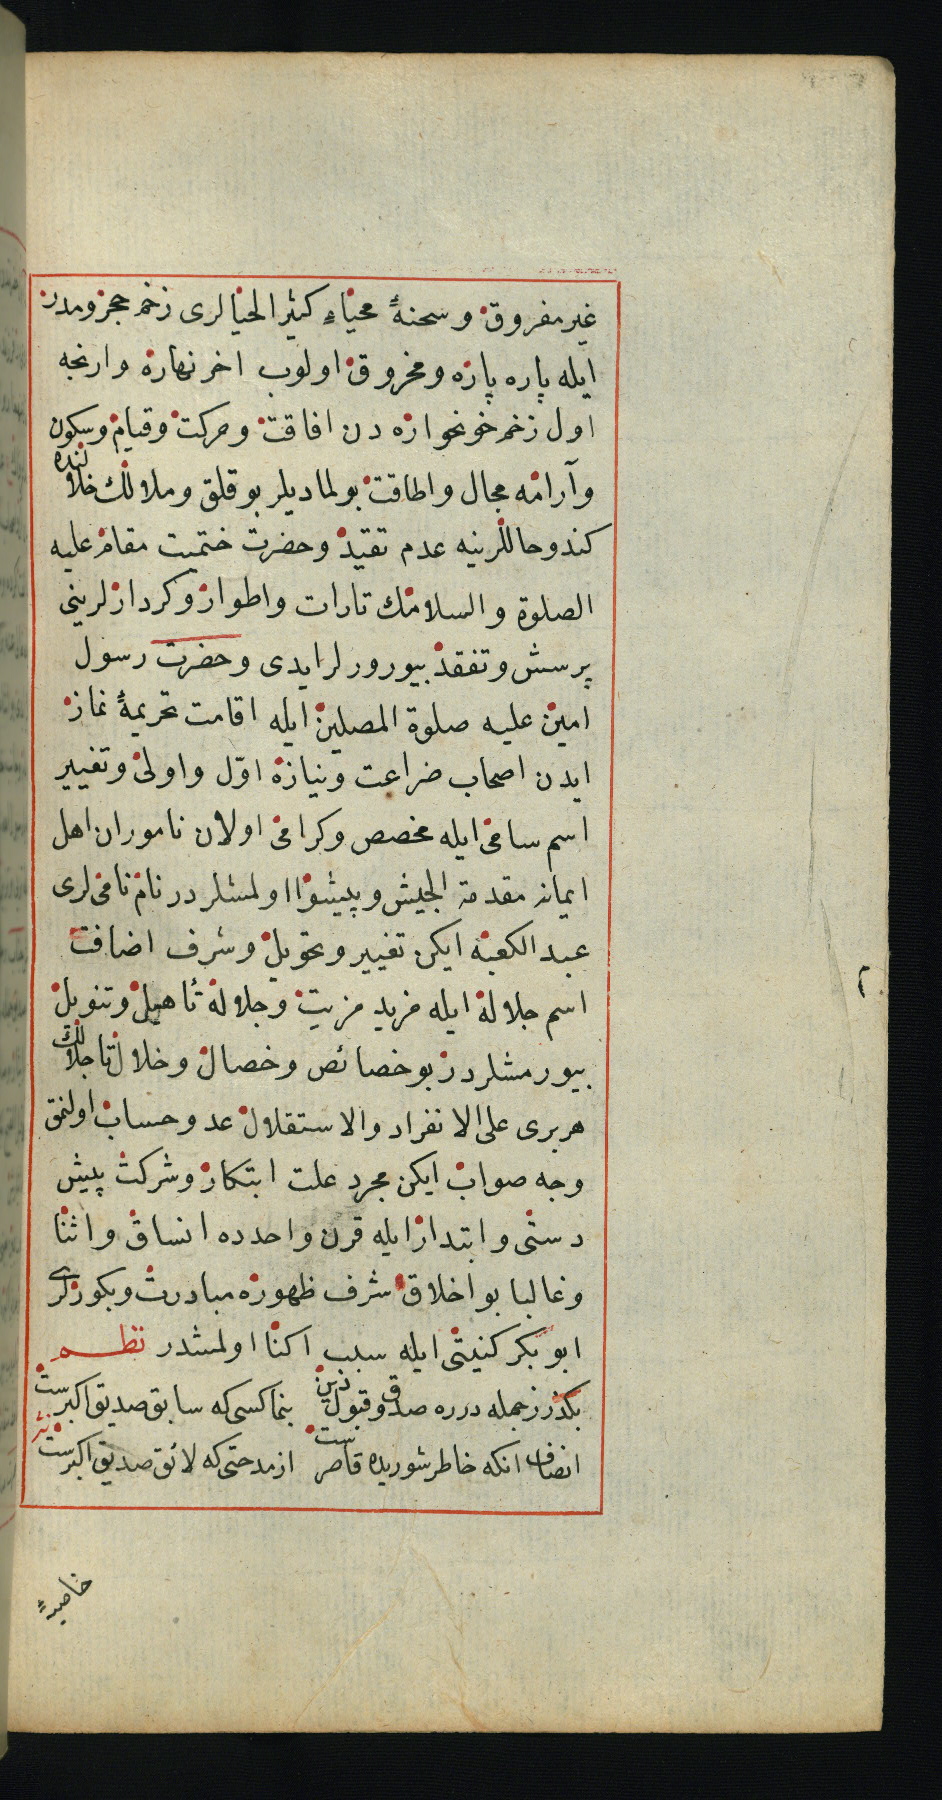 غیر مفروق و سحنهٔ محیاء کثیر الحیالری زخم حجر و مدر
ایله پاره پاره و مخروق اولوب اخر نهاره وارنجه
اول زخم خونخواره دن افاقت و حرکت و قیام و سکون
و آرامه مجال و اطاقت بولمادیلر بو قلق و ملالك خلالنده
کندو حاللرینه عدم تقید و حضرت ختمیت مقام علیه
الصلوة و السلامك تارات و اطوار و کردارلرینی
پرسش و تفقد بیورورلر ایدی و حضرت رسول
امین علیه صلوة المصلین ایله اقامت تحریمهٔ نماز
ایدن اصحاب ضراعت و نیازه اوّل و اولی و تغییر
اسم سامی ایله مخصص و کرامی اولان ناموران اهل
ایمانه مقدمة الجیش و پیشوا اولمشلردر نام نامی لری
عبد الکعبه ایکن تغییر و تحویل و شرف اضافت
اسم جلاله ایله مزید مزیت و جلاله تأهیل و تنویل
بیورمشلردر بو خصائص و خصال و خلال تاجلالك
هر بری علی الانفراد والاستقلال عد و حساب اولنمق
وجه صواب ایکن مجرد علت ابتکار و شرکت پیش
دستی و ابتدار ایله قرن واحدده انساق و اثنا
و غالبا بو اخلاق شرف ظهوره مبادرت و بکورلری
ابو بکر کنیتی ایله سبب اکنا اولمشدر نظم
بکذر زجمله درره صدق و قبول دین بنما کسی که سابق صدیق اکبرست
انصاف انکه خاطر شوریده قاصرست از مدحتی که لائق صدیق اکبرست نثر
خاصیهً